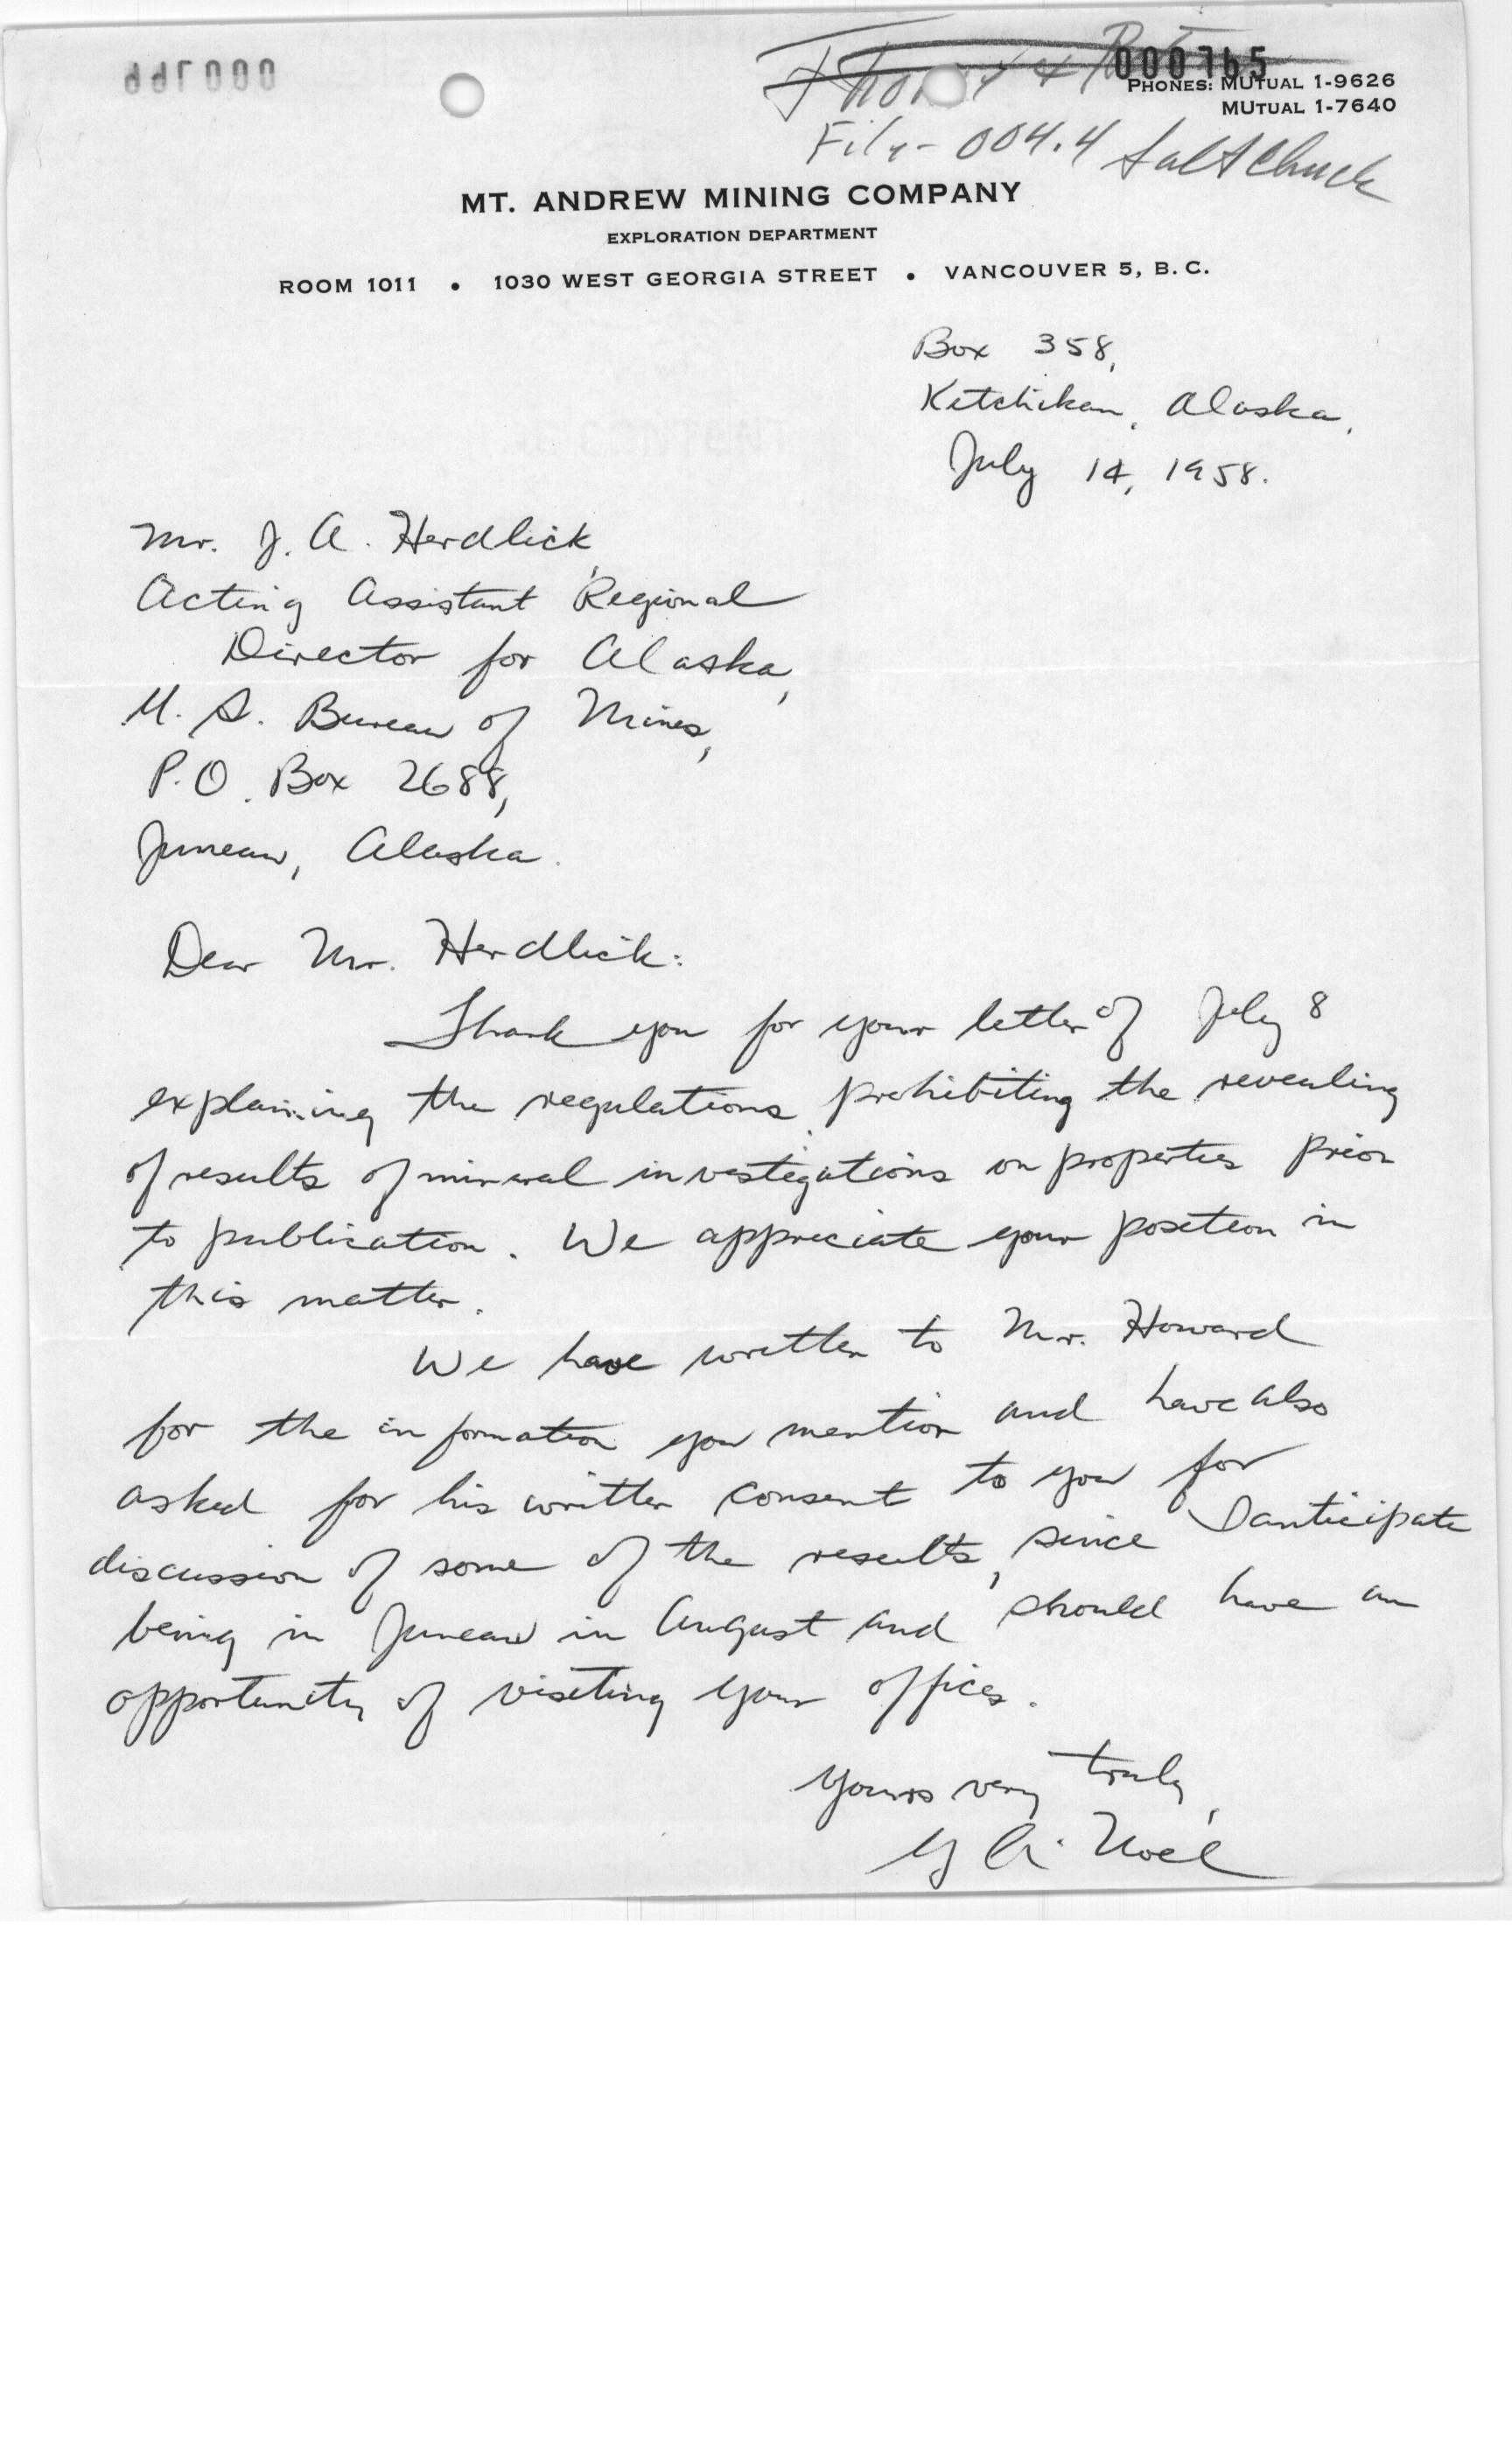 000765
PHONES: MUTUAL 1-9626
MUTUAL 1-7640
File - 004.4 Salt Chuck
MT. ANDREW MINING COMPANY
EXPLORATION DEPARTMENT
ROOM 1011 • 1030 WEST GEORGIA STREET • VANCOUVER 5, B. C.
Box 358,
Ketchikan, Alaska,
July 14, 1958.
Mr. J. A. Herdlick,
Acting Assistant Regional
Director for Alaska,
U. S. Bureau of Mines,
P.O. Box 2688,
Juneau, Alaska.
Dear Mr. Herdlick:
Thank you for your letter of July 8
explaining the regulations prohibiting the revealing
of results of mineral investigations on properties prior
to publication. We appreciate your position in
this matter.
We have written to Mr. Howard
for the information you mention and have also
asked for his written consent to you for
discussion of some of the results, since I anticipate
being in Juneau in August and should have an
opportunity of visiting your offices.
Yours very truly,
G A. Noel